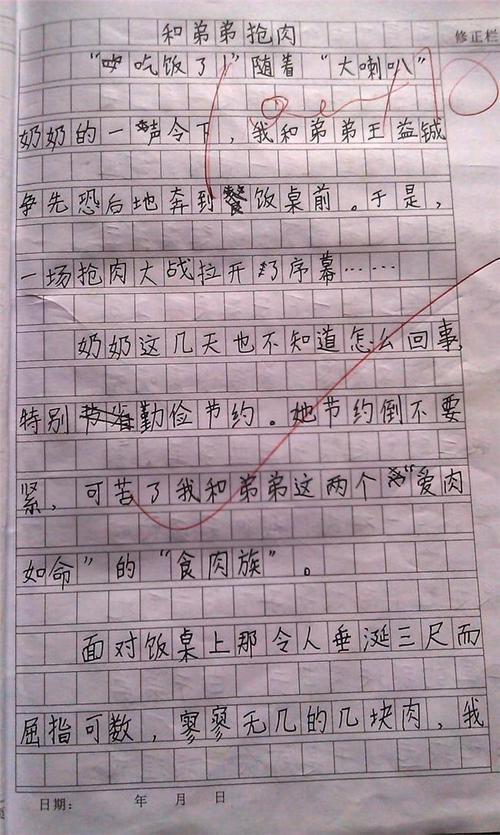 和弟弟抢肉
修正栏
“吃饭了！”随着“大喇叭”
奶奶的一声令下，我和弟弟王益铖
争先恐后地奔到餐饭桌前。于是，
一场抢肉大战拉开了序幕……
奶奶这几天也不知道怎么回事，
特别节省勤俭节约。她节约倒不要
紧，可苦了我和弟弟这两个“爱肉
如命”的“食肉族”。
面对饭桌上那令人垂涎三尺而
屈指可数，寥寥无几的几块肉，我
日期： 年 月 日